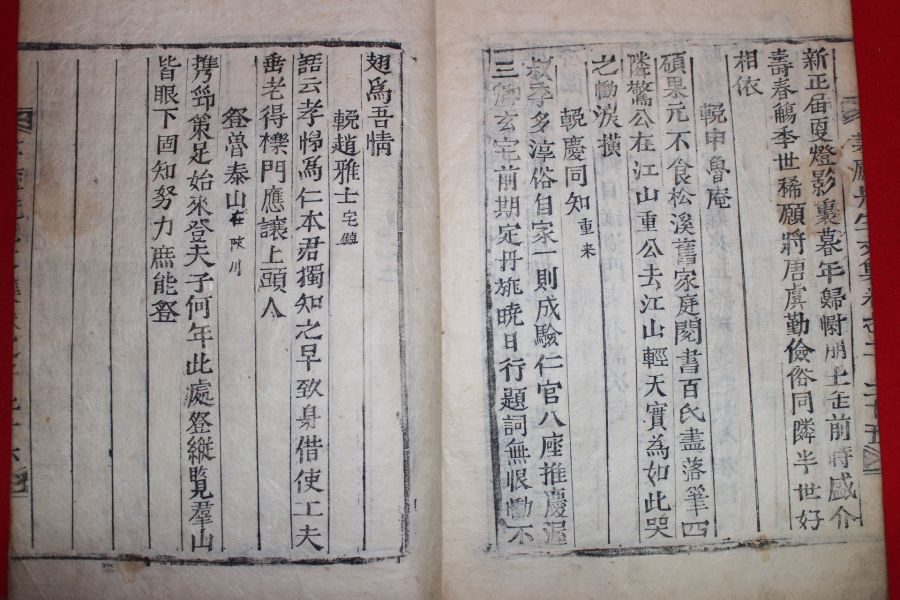 新正宙夏燈影裊暮年歸厨朋尘在前時盛介
壽春觴季世稀願將唐虞勤儉俗同隣半世好
相依
輓申魯庵
碩果元不食松溪舊家庭閱書百氏盡落筆四
隣驚公在江山重公去江山輕天實爲如此哭
之慟淚橫
輓慶同知重来
叔季多淳俗自家一則成驗仁官八座推慶渥
三 玄宅前期定丹旐曉日行題詞無恨慟不
翅爲吾情
輓趙雅士宅鎮
語云孝悌爲仁本君獨知之早致身借使工夫
垂老得櫟門應讓上頭人
登魯泰山在陜川
携笻策足始來登夫子何年此處登縱覽羣山
皆眼下固知努力庶能登